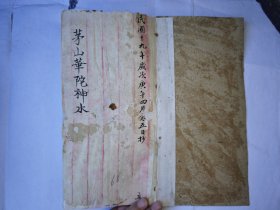 民國十九年歲次庚午四月五日抄
茅山華陀神水